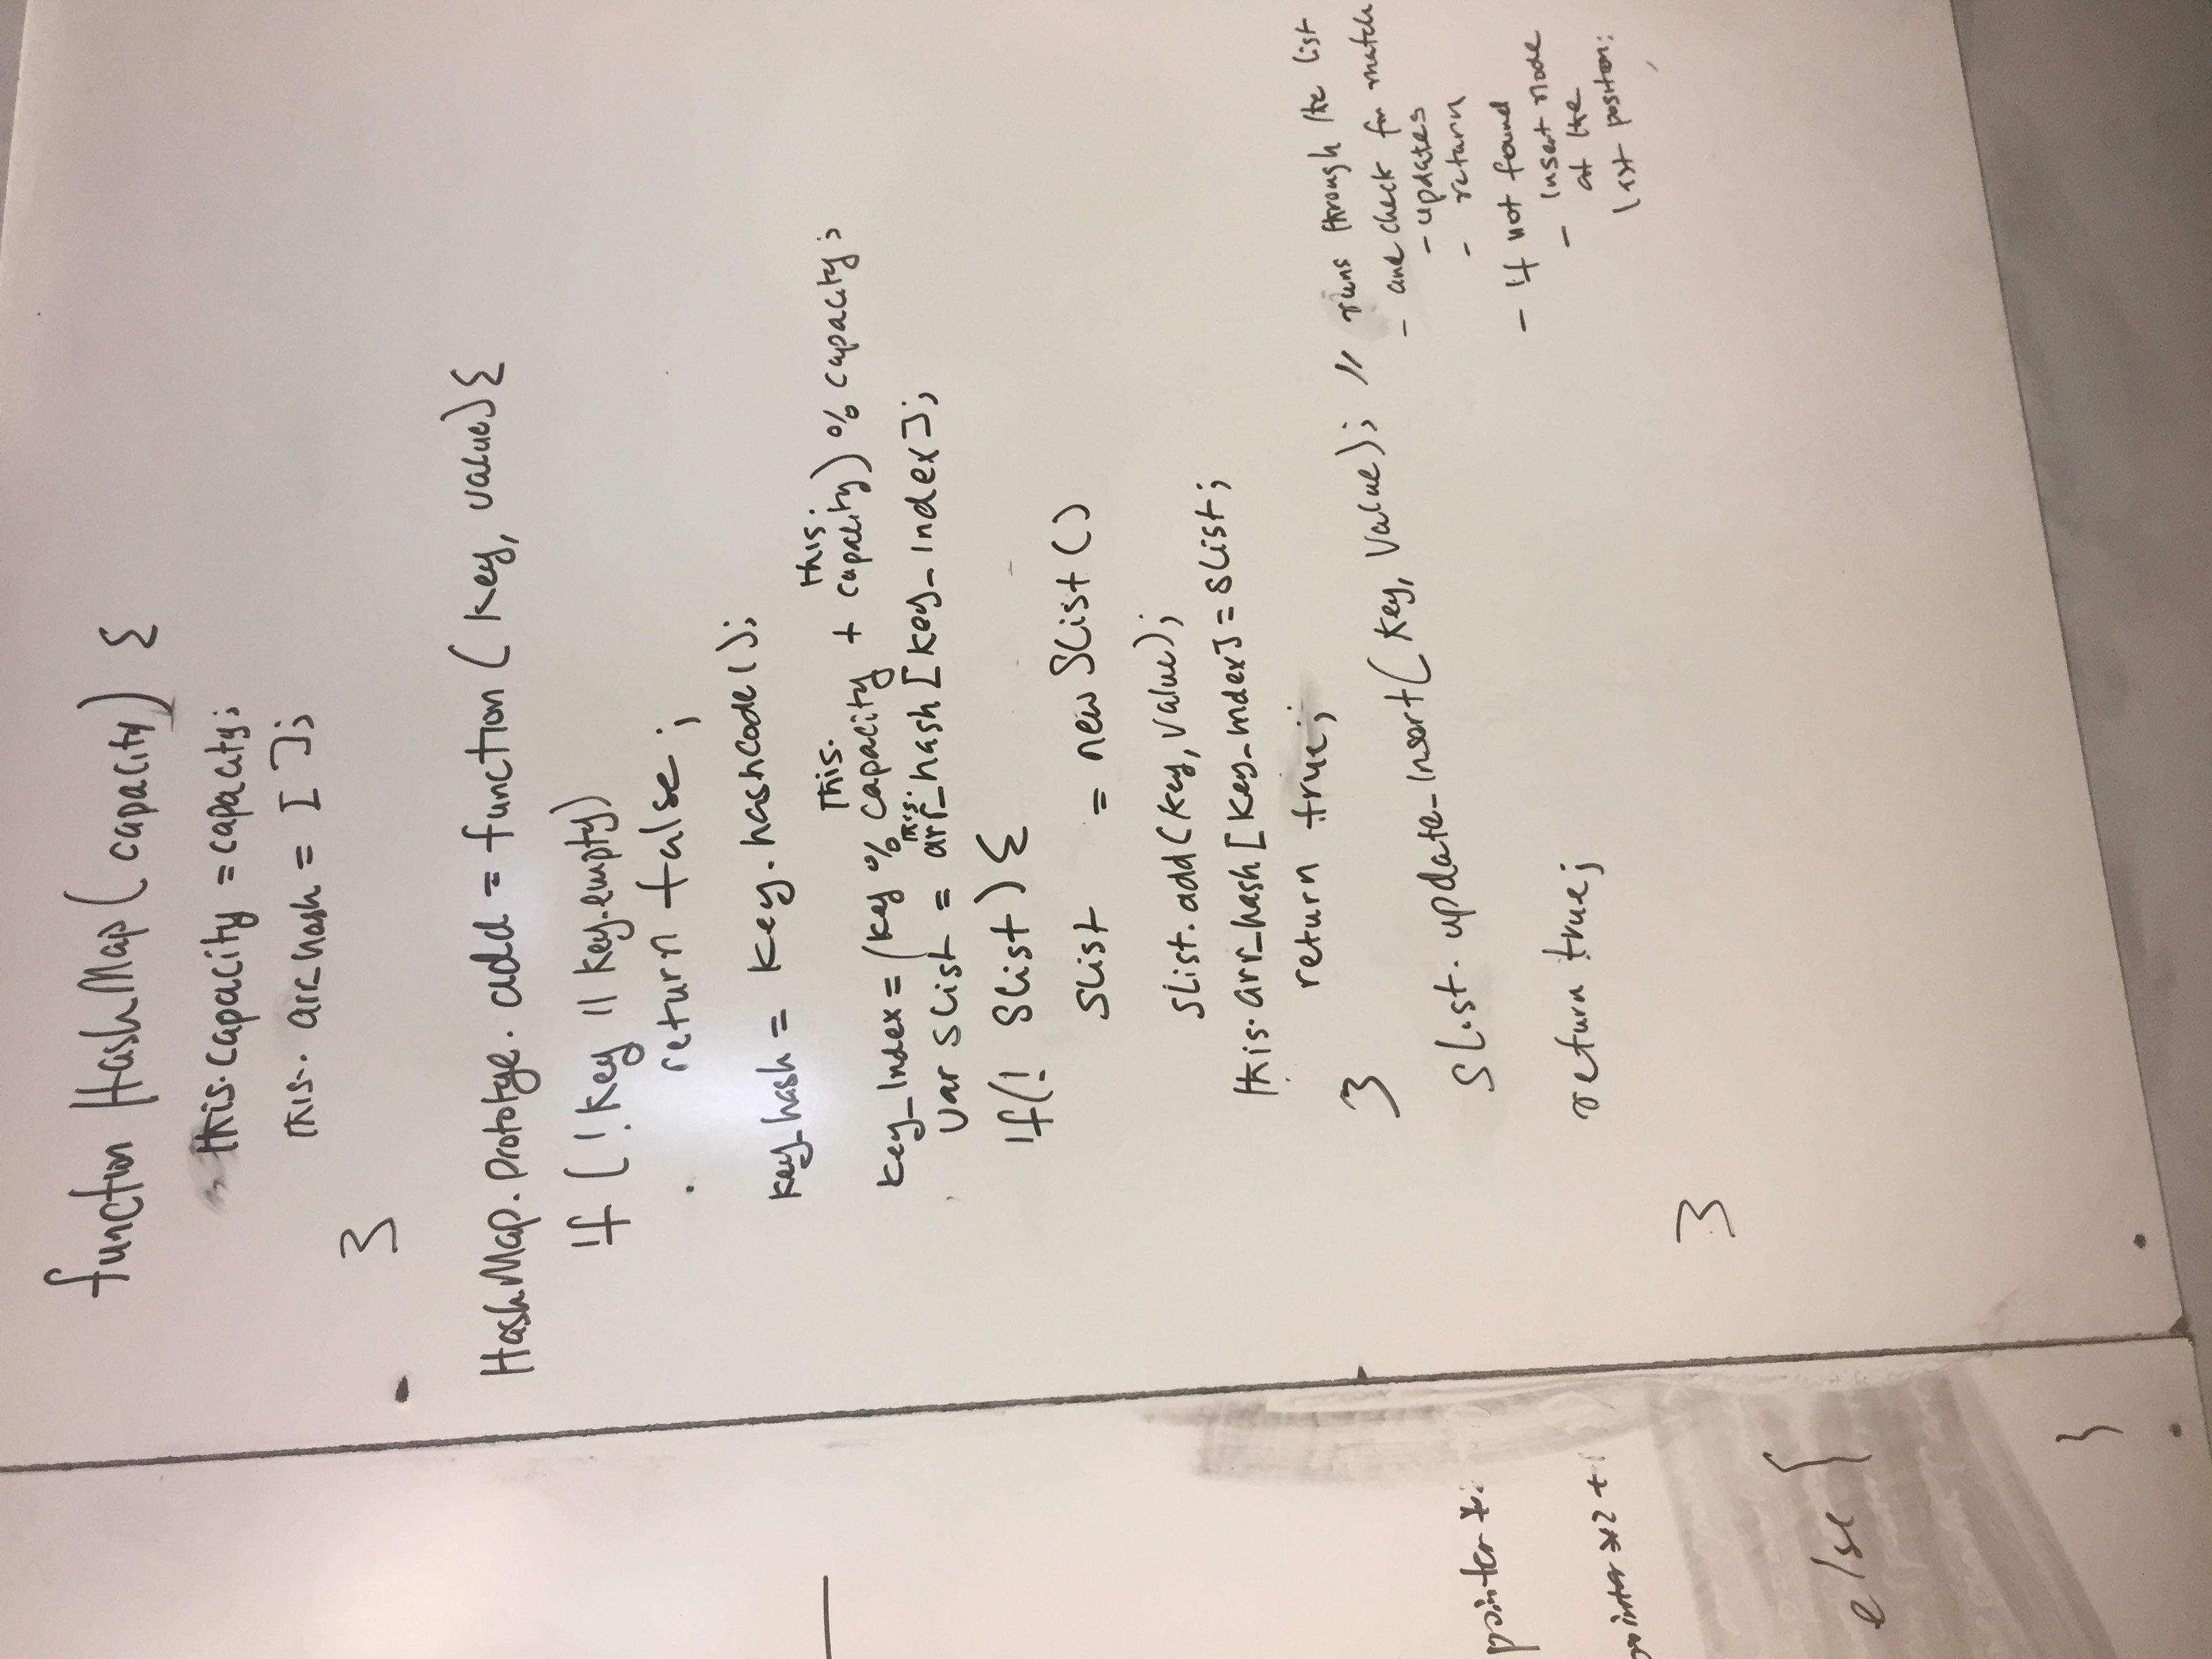 function HashMap(capacity) {
this.capacity = capacity;
this. arr_hash = [ ];
}
HashMap.prototype. add = function ( key, value) {
if ( ! key || key.empty)
return false ;
key_hash = key. hashcode ( );
this. this.
key_index = (key % capacity + capacity) % capacity ;
this.
var slist = arr_hash [key_index];
if (! slist ) {
slist = new SList ( )
slist. add (key, value);
this. arr_hash [key_index] = slist ;
return true;
}
slist. update_insert ( key, value); // runs through the list
- and check for match
- updates
- return
- if not found
- insert node
at the
last position;
return true;
}
pointer *2
pointer *2 +
else {
}